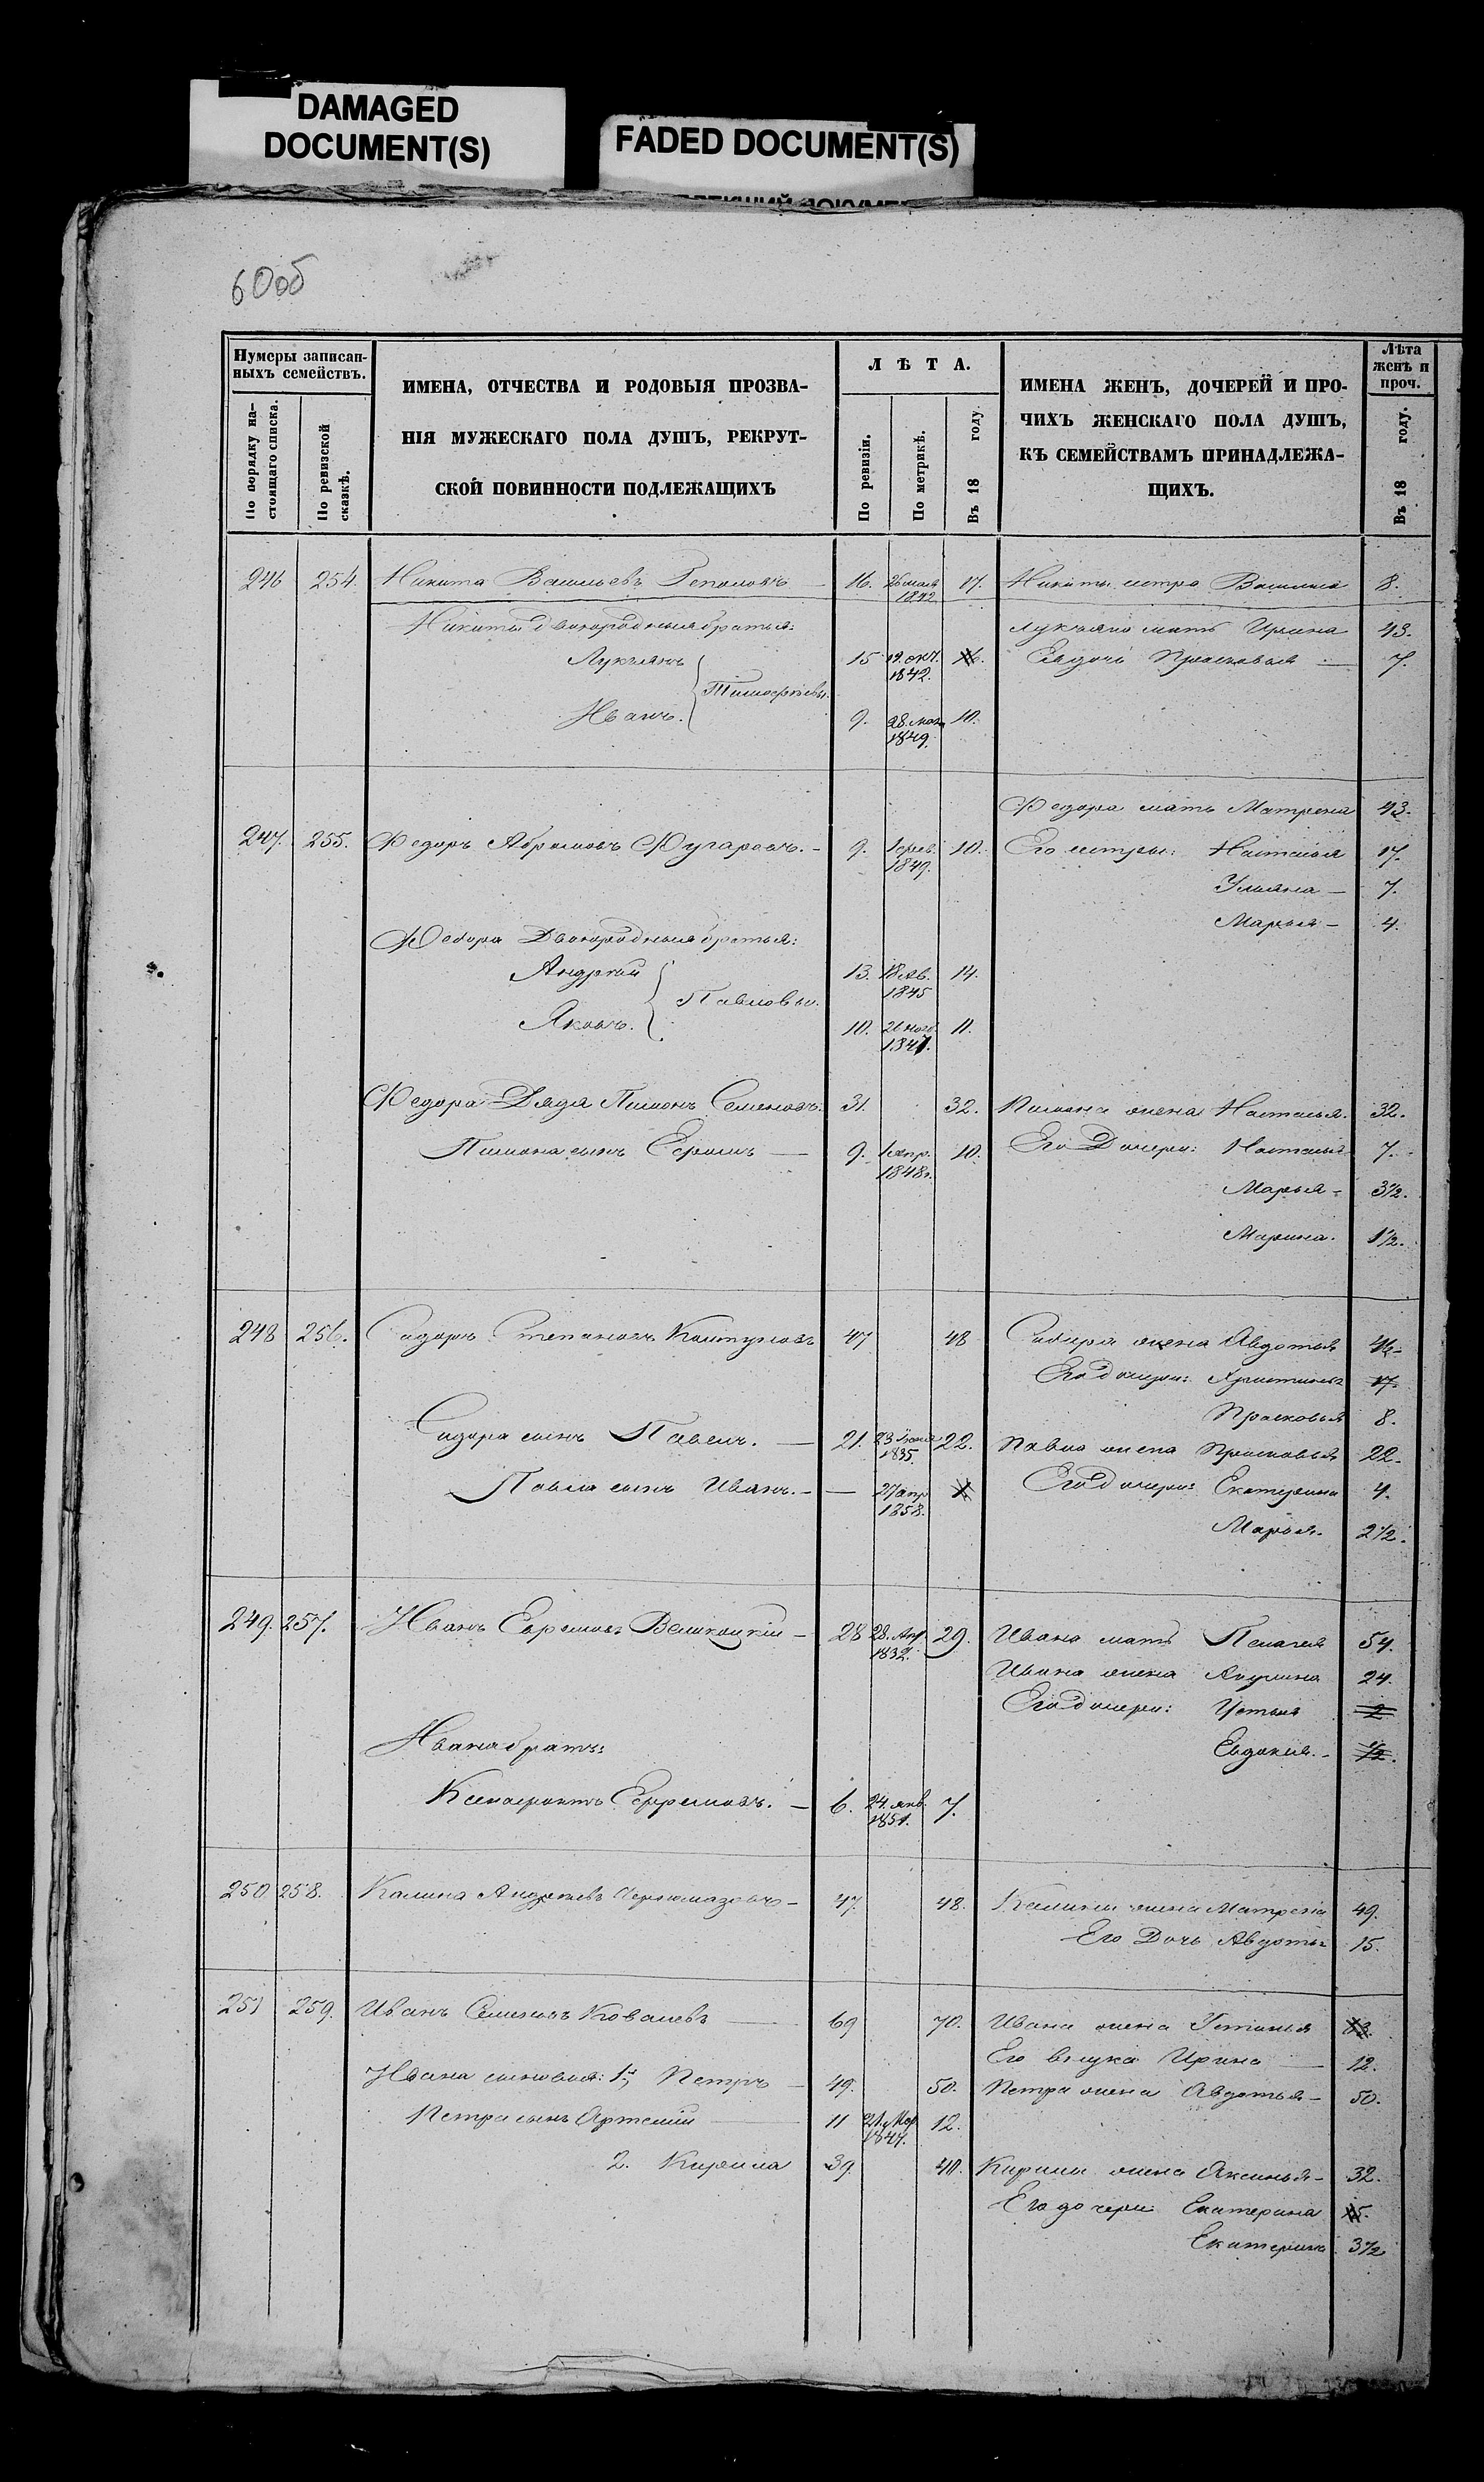 DAMAGED
DOCUMENT(S)
FADED DOCUMENT(S)
60об
Нумеры записан-
ныхъ семействъ.
По порядку на-
стоящаго списка.
По ревизской
сказкѣ.
ИМЕНА, ОТЧЕСТВА И РОДОВЫЯ ПРОЗВА-
НІЯ МУЖЕСКАГО ПОЛА ДУШЪ, РЕКРУТ-
СКОЙ ПОВИННОСТИ ПОДЛЕЖАЩИХЪ
ЛѢТА.
По ревизіи.
По метрикѣ.
Въ 18 году.
ИМЕНА ЖЕНЪ, ДОЧЕРЕЙ И ПРО-
ЧИХЪ ЖЕНСКАГО ПОЛА ДУШЪ,
КЪ СЕМЕЙСТВАМЪ ПРИНАДЛЕЖА-
ЩИХЪ.
Лѣта
женъ и
проч.
Въ 18 году.
246 254. Никита Васильевъ 16. 1842 17. Никиты сестра 8.
Никиты двоюродныя братья: Лукьяна мать Ирина 43.
Лукьянъ 15 19. окт. 1842. Прасковья 7.
Тимофѣевы.
Иванъ. 9. 28. 1849. 10.
Федора мать Матрена 43.
247. 255. Федоръ Абрамовъ 9. 1 фев. 1849. 10. Его сестры: Настасья 17.
Ульяна 7.
Марья 4.
Федора Двоюродныя братья:
Андрей 13. 18 Яв. 1845 14.
Павловы.
Яковъ. 10. 1847. 11.
Федора Дядя Пимонъ Семеновъ. 31. 32. Пимона жена Настасья. 32.
Пимона сынъ 9. 1 апр. 1848г. 10. Его Дочери: Настасья 7.
Марья 3½.
Марина. 1½.
248 256. Сидоръ Степановъ 47 48 Сидора жена Авдотья
Его дочери: 17.
Прасковья 8.
Сидора сынъ Павелъ. 21. 23 1835. 22. Павла жена Прасковья 22.
Павла сынъ Иванъ. 27 апр 1858. Его дочери: Екатерина 4.
Марья. 2½.
249. 257. Иванъ Ефремовъ 28 28. Апр. 1832. 29. Ивана мать Пелагея 54.
Ивана жена Акулина 24.
Его дочери: 2
Ивана братъ: Евдокия. ½.
Ксенофонтъ Ефремовъ. 6. 24. янв. 1851. 7.
250 258. Калина Андреевъ 47. 48. Калины жена Матрена 49.
Его Дочь Авдотья 15.
251 259. Иванъ Семеновъ Ковалевъ 69 70. Ивана жена Устинья
Его внука Ирина 12.
Ивана сыновья: 1й Петръ 49. 50. Петра жена Авдотья 50.
Петра сынъ Артемий 11 21. Мар. 1847. 12.
2. Кирила 39. 40. Кирилы жена Аксинья 32.
Его дочери Екатерина
Екатерина 3½